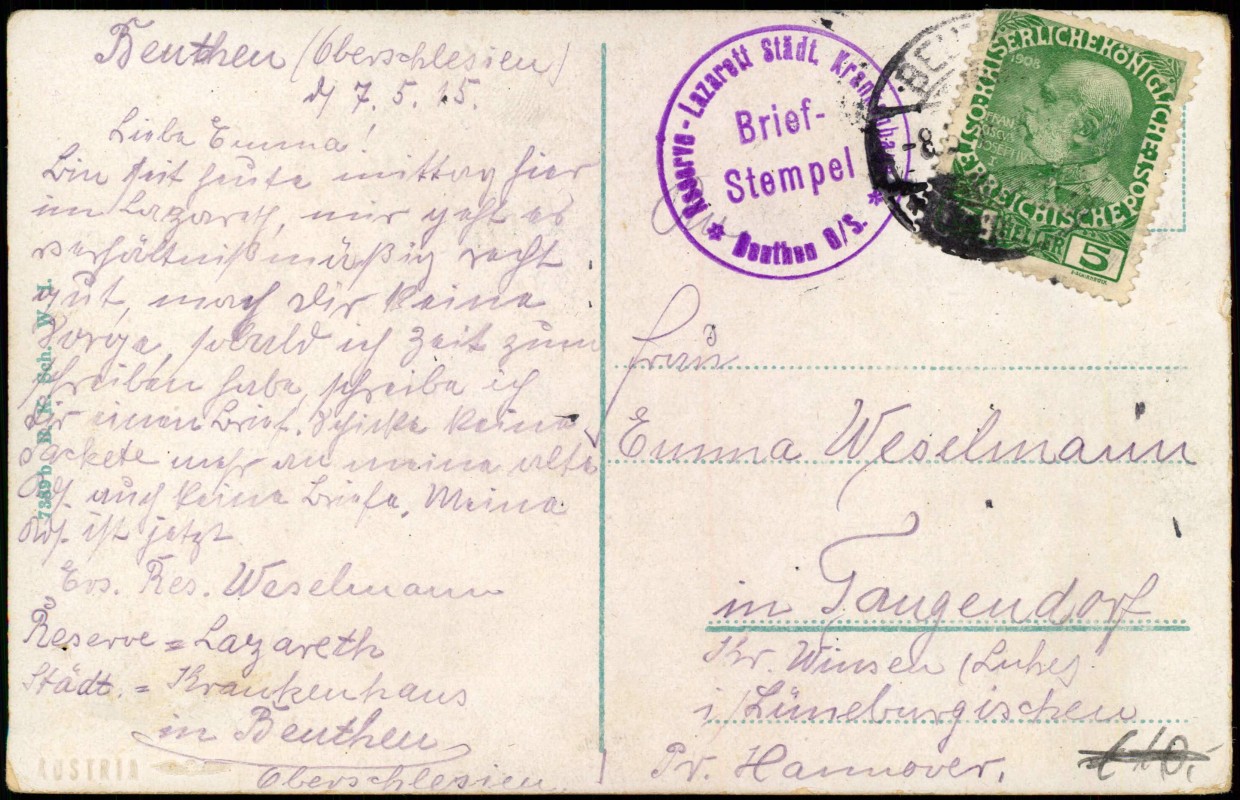 Beuthen (Oberschlesien)
d/ 7. 5. 15.
Liebe Emma!
Bin seit heute mittag hier
im Lazareth, mir geht es
verhältnißmäßig recht
gut, mach Dir keine
Sorge, sobald ich Zeit zum
schreiben habe, schreibe ich
Dir einen Brief. Schicke keine
Packete mehr an meine alte
Adr. auch keine Briefe. Meine
Adr. ist jetzt
Ers. Res. Weselmann
Reserve=Lazareth
Städt.=Krankenhaus
in Beuthen
Oberschlesien
AUSTRIA
B. K. Sch. W. I.
Reserve-Lazarett Städt. Krankenhaus
Brief-
Stempel
* Beuthen O/S. *
BEU
-8.
KAISERLICHE KÖNIGLICHE
ÖSTERREICHISCHE POST
1908
FRAN
IOSEFII
I
HELLER
5
An
Frau
Emma Weselmann
in Tangendorf
Kr. Winsen (Luhe)
i/Lüneburgischen
Pr. Hannover.